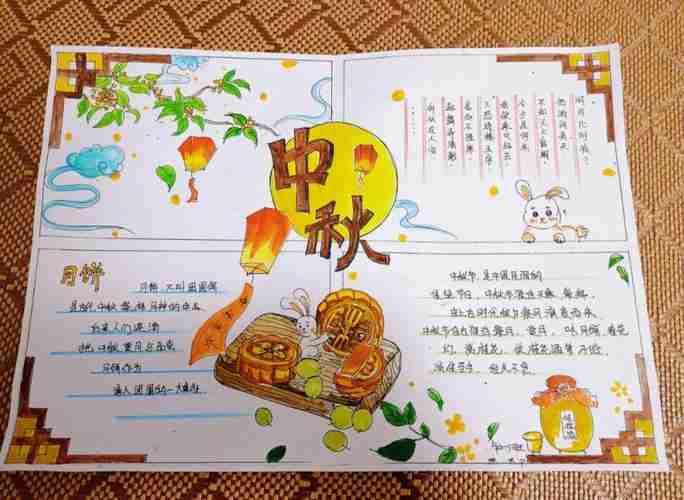 中秋
明月几时有？
把酒问青天
不知天上宫阙
今夕是何年
我欲乘风归去
又恐琼楼玉宇
高处不胜寒
起舞弄清影
何似在人间
……
月饼
月饼 又叫团圆饼
是古代中秋祭拜月神的供品
后来人们逐渐
把中秋赏月与品尝
月饼作为
家人团圆的一大象征
中秋节，是中国民间的
传统节日，中秋节源
中秋节自古便有祭月、赏月、吃月饼、看花
灯、赏桂花、饮桂花酒等习俗
流传至今，经久不息
桂花酒